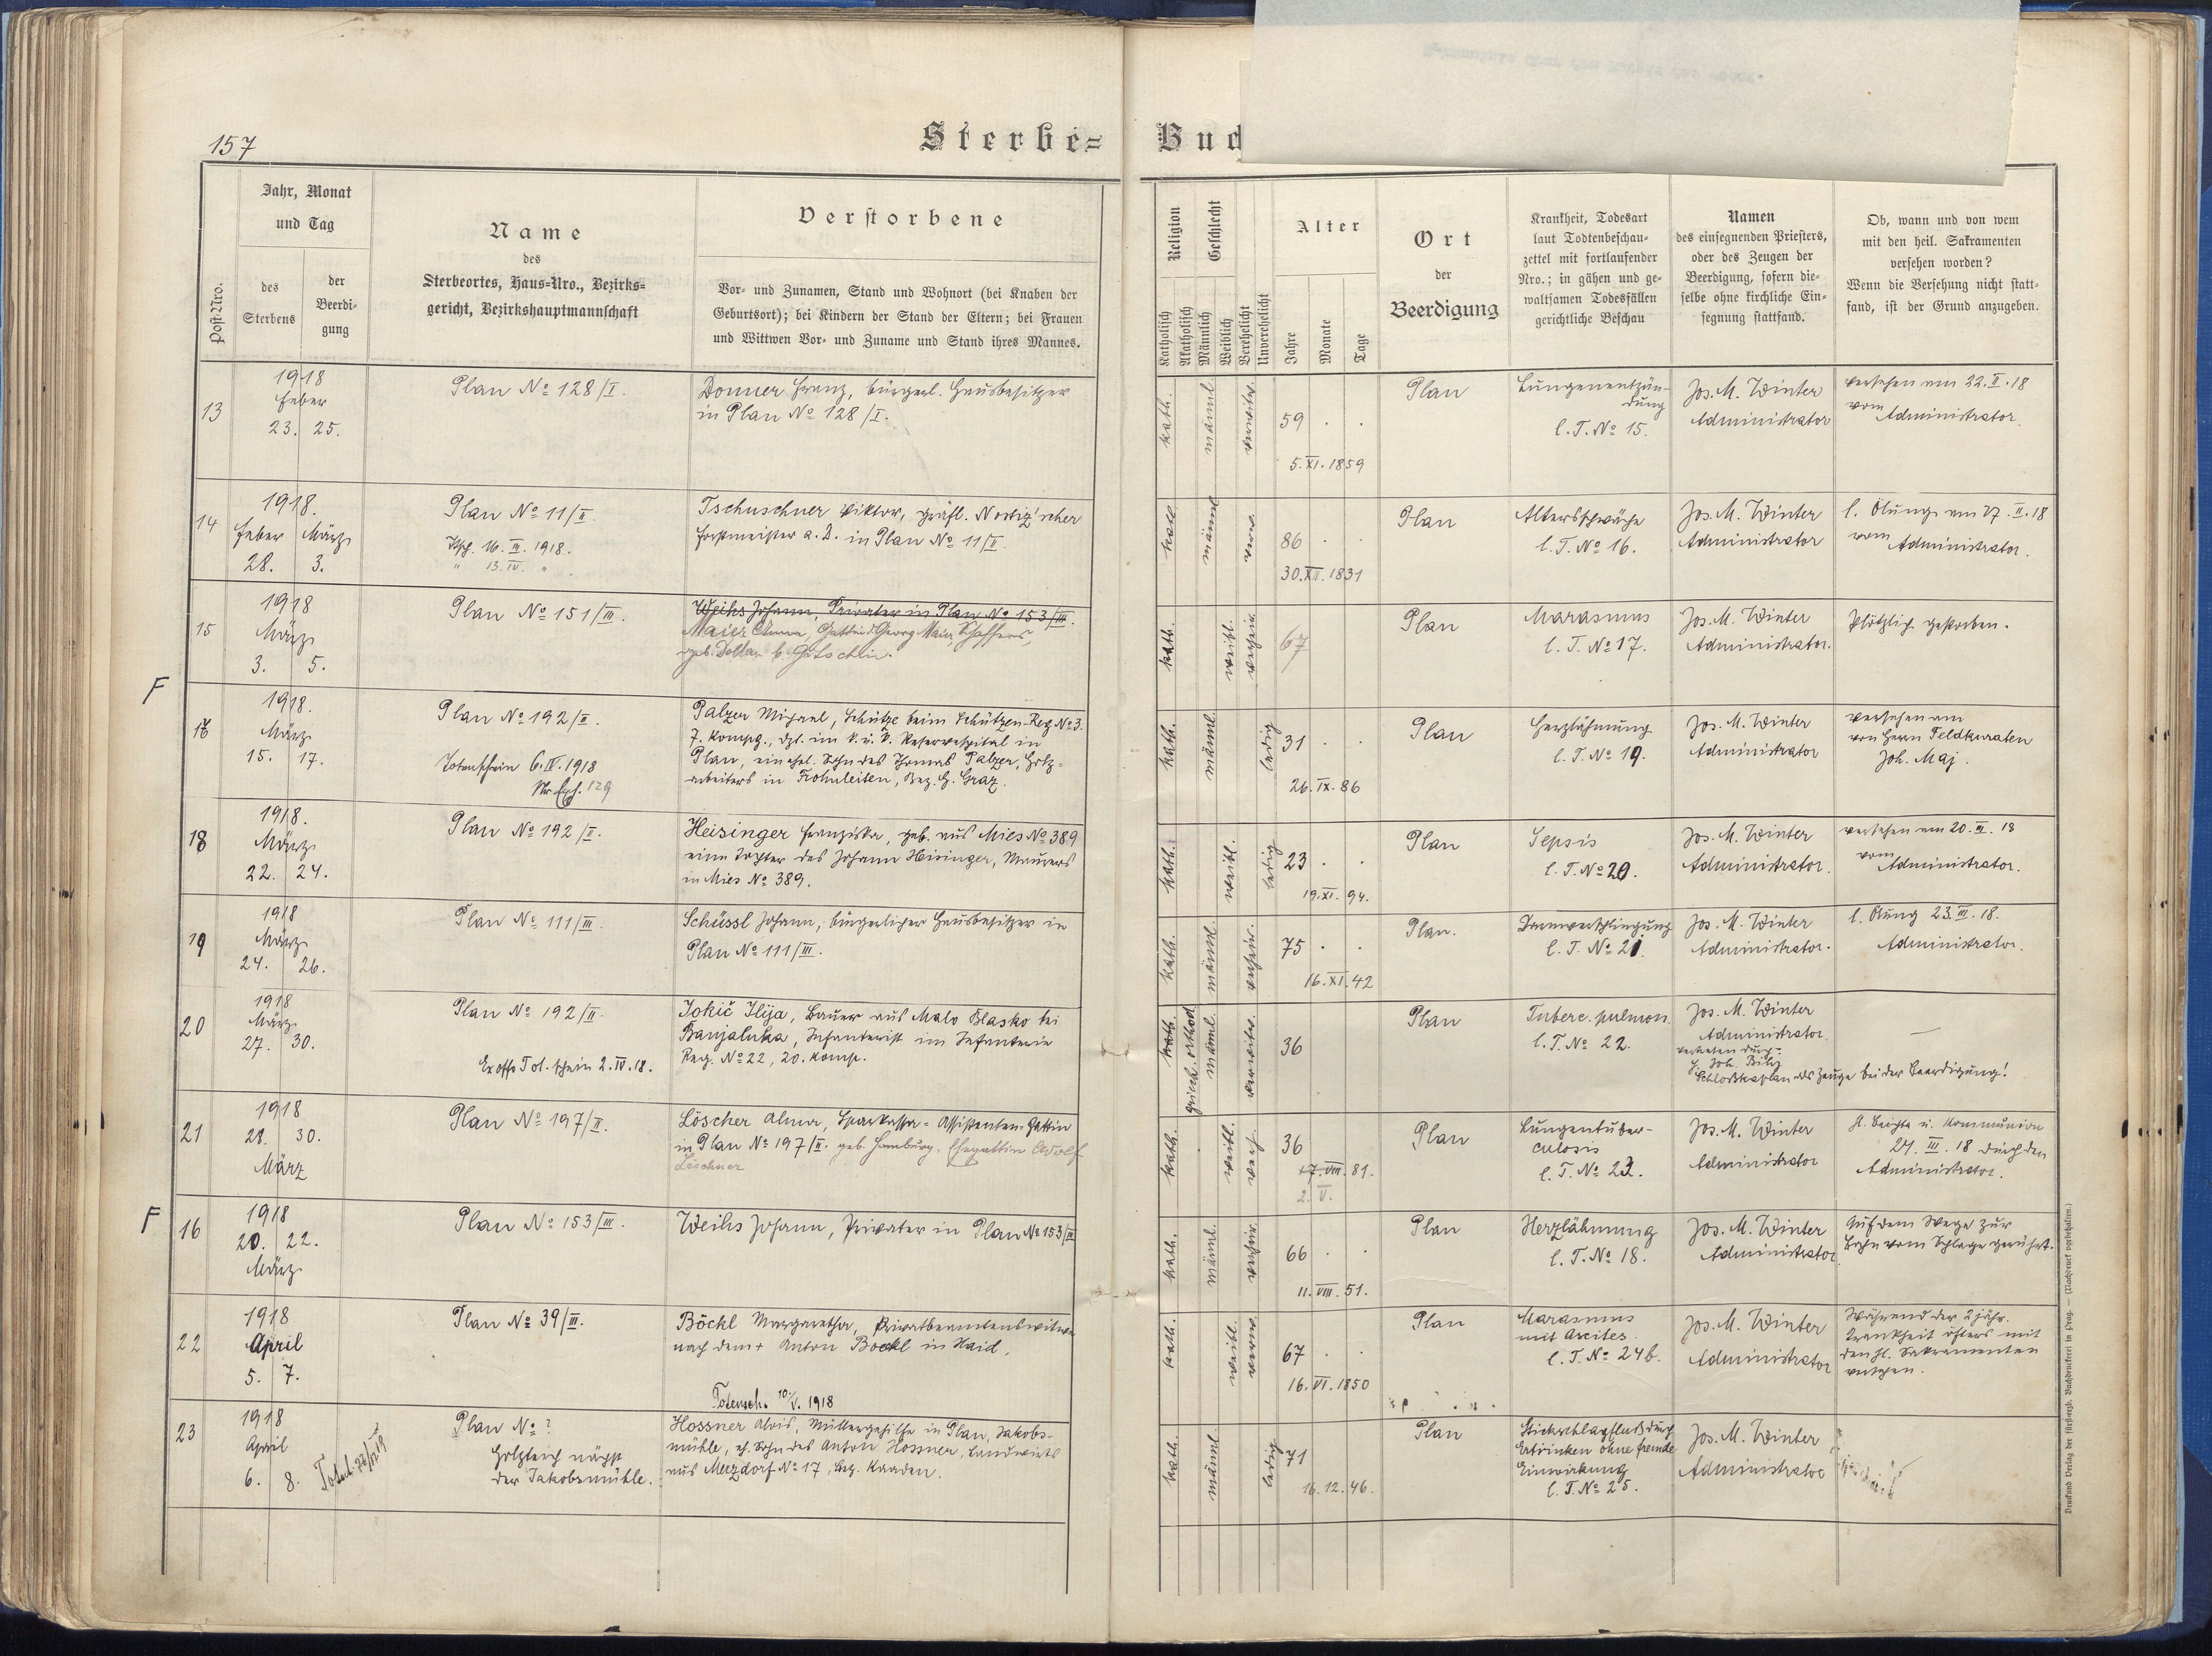 157
Sterbe=
Buc
Post-Nro.
Jahr, Monat
und Tag
des
Sterbens
der
Beerdi-
gung
Name
des
Sterbeortes, Haus-Nro., Bezirks-
gericht, Bezirkshauptmannschaft
Verstorbene
Vor- und Zunamen, Stand und Wohnort (bei Knaben der
Geburtsort); bei Kindern der Stand der Eltern; bei Frauen
und Wittwen Vor- und Zuname und Stand ihres Mannes.
Religion
Katholisch
Akatholisch
Geschlecht
Männlich
Weiblich
Verehelicht
Unverehelicht
Alter
Jahre
Monate
Tage
Ort
der
Beerdigung
Krankheit, Todesart
laut Todtenbeschau-
zettel mit fortlaufender
Nro.; in gähen und ge-
waltsamen Todesfällen
gerichtliche Beschau
Namen
des einsegnenden Priesters,
oder des Zeugen der
Beerdigung, sofern die-
selbe ohne kirchliche Ein-
segnung stattfand.
Ob, wann und von wem
mit den heil. Sakramenten
versehen worden?
Wenn die Versehung nicht statt-
fand, ist der Grund anzugeben.
13
1918
Feber
23. 25.
Plan No 128/I.
Donner Franz, bürgerl. Hausbesitzer
in Plan No 128/I.
kath.
männl.
verwitw.
59 . .
5. XI. 1859
Plan
Lungenentzün-
dung
l. T. No 15.
Jos. M. Winter
Administrator
versehen am 22. II. 18
vom Administrator.
14
1918.
Feber März
28. 3.
Plan No 11/II
16. III. 1918.
" 13. IV. "
Tschuschner Viktor, gräfl. Nostiz'scher
Forstmeister a. D. in Plan No 11/II.
kath.
männl.
verw.
86 . .
30. XII. 1831
Plan
Altersschwäche
l. T. No 16.
Jos. M. Winter
Administrator
l. Ölung am 27. II. 18
vom Administrator.
15
1918
März
3. 5.
Plan No 151/III.
Weihs Johann, Privater in Plan No 153/III.
Maier Anna, Gattin d. Georg Maier, Schaffers,
geb.
kath.
weibl.
verheir.
67
Plan
Marasmus
l. T. No 17.
Jos. M. Winter
Administrator.
Plötzlich gestorben.
F
1918.
März
15. 17.
Plan No 192/II.
Totenschein 6. IV. 1918
129
Palzer Michael, Schütze beim Schützen-Reg No 3.
7. Kompg., dzt. im k. u. k. Reservespital in
Plan, ein ehel. Sohn des Thomas Palzer, Holz-
arbeiters in Frohnleiten, Bez. H. Graz.
kath.
männl.
ledig
31 . .
26. IX. 86
Plan
Herzlähmung
l. T. No 19.
Jos. M. Winter
Administrator
versehen am
von Herrn Feldkuraten
Joh. Maj.
18
1918.
März
22. 24.
Plan No 192/II.
Heisinger Franziska, geb. aus Mies No 389
eine Tochter des Johann Heisinger, Maurers
in Mies No 389.
kath.
weibl.
ledig
23 . .
19. XI. 94.
Plan
Sepsis
l. T. No 20.
Jos. M. Winter
Administrator.
versehen am 20. III. 18
vom Administrator.
19
1918
März
24. 26.
Plan No 111/III.
Schüssl Johann, bürgerlicher Hausbesitzer in
Plan No 111/III.
kath.
männl.
verheir.
75 . .
16. XI. 42
Plan.
Darmverschlingung
l. T. No 21.
Jos. M. Winter
Administrator.
l. Ölung 23. III. 18.
Administrator.
20
1918
März
27. 30.
Plan No 192/II.
Ex offo Tot. schein 2. IV. 18.
Jokič Ilija, Bauer aus Malo Blasko bei
Banjaluka, Infanterist im Infanterie
Reg. No 22, 20. Komp.
kath.
griech. orthod.
männl.
verwitw.
36
Plan
Tuberc. pulmon.
l. T. No 22.
Jos. M. Winter
Administrator.
vertreten durch
Schloßkaplan als Zeuge bei der Beerdigung!
—
21
1918
28. 30.
März
Plan No 197/II.
Löscher Alma, Sparkassa-Assistenten-Gattin
in Plan No 197/II. geb. Hamburg, Ehegattin Adolf
Löschner
kath.
weibl.
verh.
36
17. VIII. 81.
2. V.
Plan
Lungentuber-
culosis
l. T. No 23.
Jos. M. Winter
Administrator
hl. Beichte u. Kommunion
27. III. 18 durch den
Administrator.
F
16
1918
20. 22.
März
Plan No 153/III.
Weihs Johann, Privater in Plan No 153/III
kath.
männl.
verheir.
66 . .
11. VIII. 51.
Plan
Herzlähmung
l. T. No 18.
Jos. M. Winter
Administrator
Auf dem Wege zur
Bahn vom Schlage gerührt.
22
1918
April
5. 7.
Plan No 39/III.
Böckl Margaretha, Privatbeamtenswitwe
nach dem + Anton Böckl in Haid.
kath.
weibl.
verw.
67 . .
16. VI. 1850
Plan
Marasmus
mit Ascites.
l. T. No 24b.
Jos. M. Winter
Administrator
Während der 2 jähr.
Krankheit öfters mit
den hl. Sakramenten
versehen.
Totensch. 10/V. 1918
23
1918
April
6. 8.
Plan No ?
Holzteich nächst
der Jakobsmühle.
Hossner Alois, Müllergehilfe in Plan, Jakobs-
mühle, eh. Sohn des Anton Hossner, Landwirts
aus Merzdorf No 17, Bez. Kaaden.
kath.
männl.
ledig
71
16. 12. 46.
Plan
Stickschlagfluß durch
Ertrinken ohne fremde
Einwirkung
l. T. No 25.
Jos. M. Winter
Administrator
Druck und Verlag der fürsterzb. Buchdruckerei in Prag. — (Nachdruck vorbehalten.)